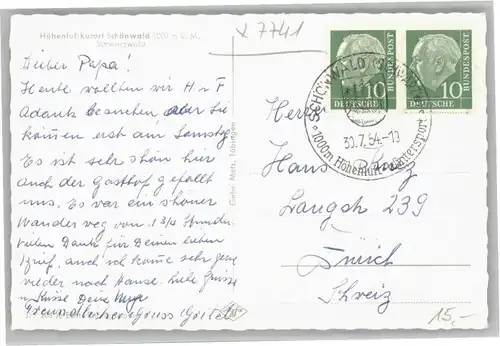 Höhenluftkurort Schönwald 1000 m ü. M.
Schwarzwald
x 7741
Lieber Papa!
Heute wollten wir H u F
Adank besuchen aber Sie
kommen erst am Samstag.
Es ist sehr schön hier
auch der Gasthof gefällt
uns. Es war ein schöner
Wander weg von 1 3/4 Stunden
vielen Dank für Deinen lieben
Brief, auch ich komme sehr gerne
wieder nach Hause. Viele Grüsse
u Küsse Deine
Freundlicher Gruss Gritel
Gebr. Metz, Tübingen
10 DEUTSCHE BUNDESPOST
10 DEUTSCHE BUNDESPOST
SCHÖNWALD (SCHWARZW)
30.7.54.-19
1000m Höhenluft- Wintersport
Herr
Hans
Langstr 239
Zürich
Schweiz
15,-